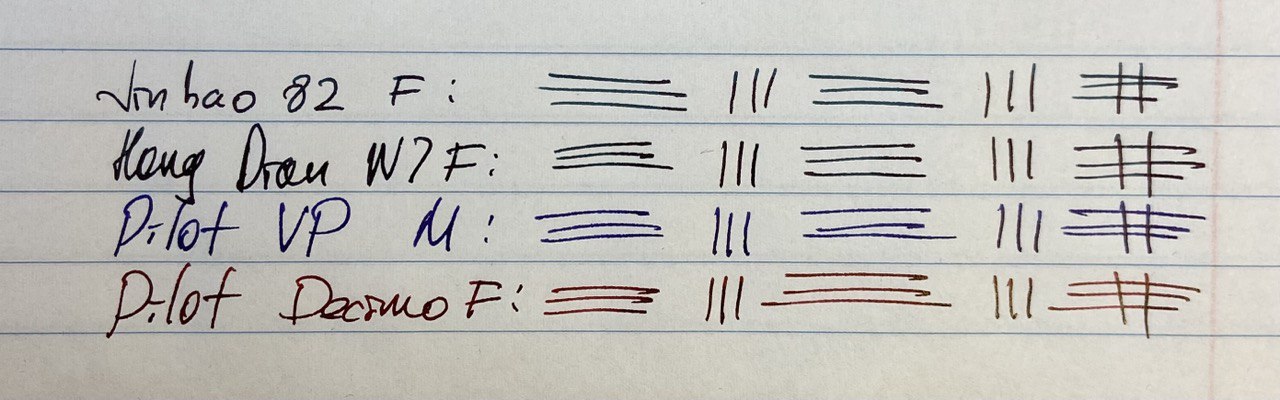 Jinhao 82 F:
Hong Dian N7 F:
Pilot VP M:
Pilot Decimo F: